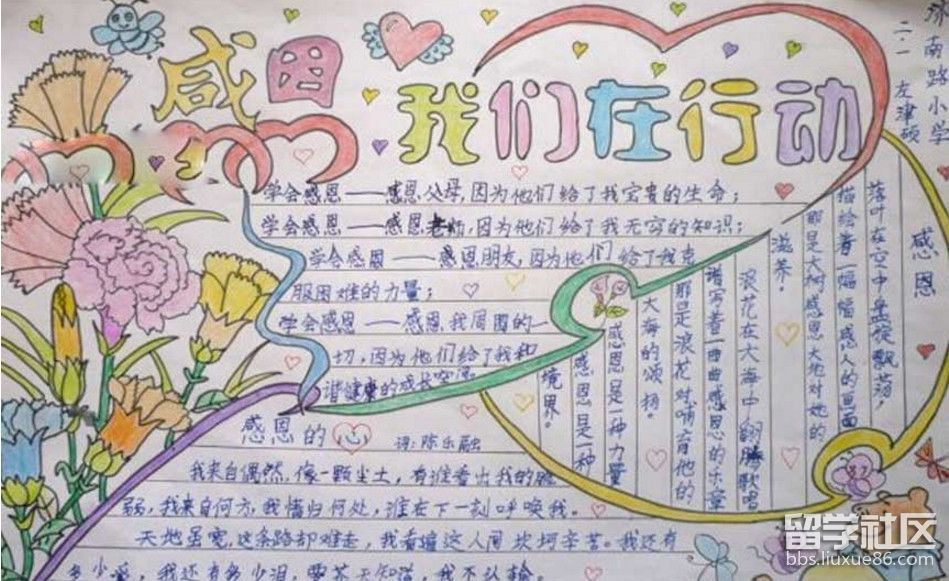 感恩
我们在行动
济南路小学
二.一
左津硕
学会感恩——感恩父母,因为他们给了我宝贵的生命;
学会感恩——感恩老师,因为他们给了我无穷的知识;
学会感恩——感恩朋友,因为他们给了我克
服困难的力量;
学会感恩——感恩我周围的一
切,因为他们给了我和
谐健康的成长空间
感恩
落叶在空中盘旋飘荡,
描绘着一幅幅感人的画面
那是大树感恩大地对她的
滋养。
浪花在大海中翻腾歌唱
谱写着一曲曲感恩的乐章
那是浪花对哺育他的
大海的颂扬。
感恩是一种力量
感恩是一种
境界。
感恩的心
词:陈乐融
我来自偶然,像一颗尘土,有谁看出我的脆
弱,我来自何方,我情归何处,谁在下一刻呼唤我。
天地虽宽,这条路却难走,我看遍这人间坎坷辛苦。我还有
多少爱,我还有多少泪,要苍天知道,我不认输
留学社区
bbs.liuxue86.com